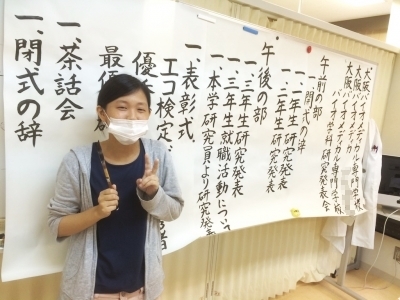 大阪バイオメディカル専門学校
大阪バイオメディカル専門学校
バイオ学科 研究発表会
午前の部
一、開式の辞
一、二年生研究発表
一、三年生研究発表
午後の部
一、三年生研究発表
一、三年生就職活動につい
一、本学研究員より研究発
一、表彰式
エコ検定
優
最優
一、茶話会
一、閉式の辞